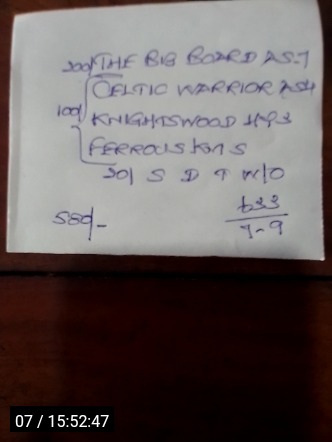 200/ THE BIG BOARD AS-7
CELTIC WARRIOR AS4
100/ KNIGHTSWOOD
FERROUS S
20/ S D T W/O
580/-
633
7-9
07 / 15:52:47